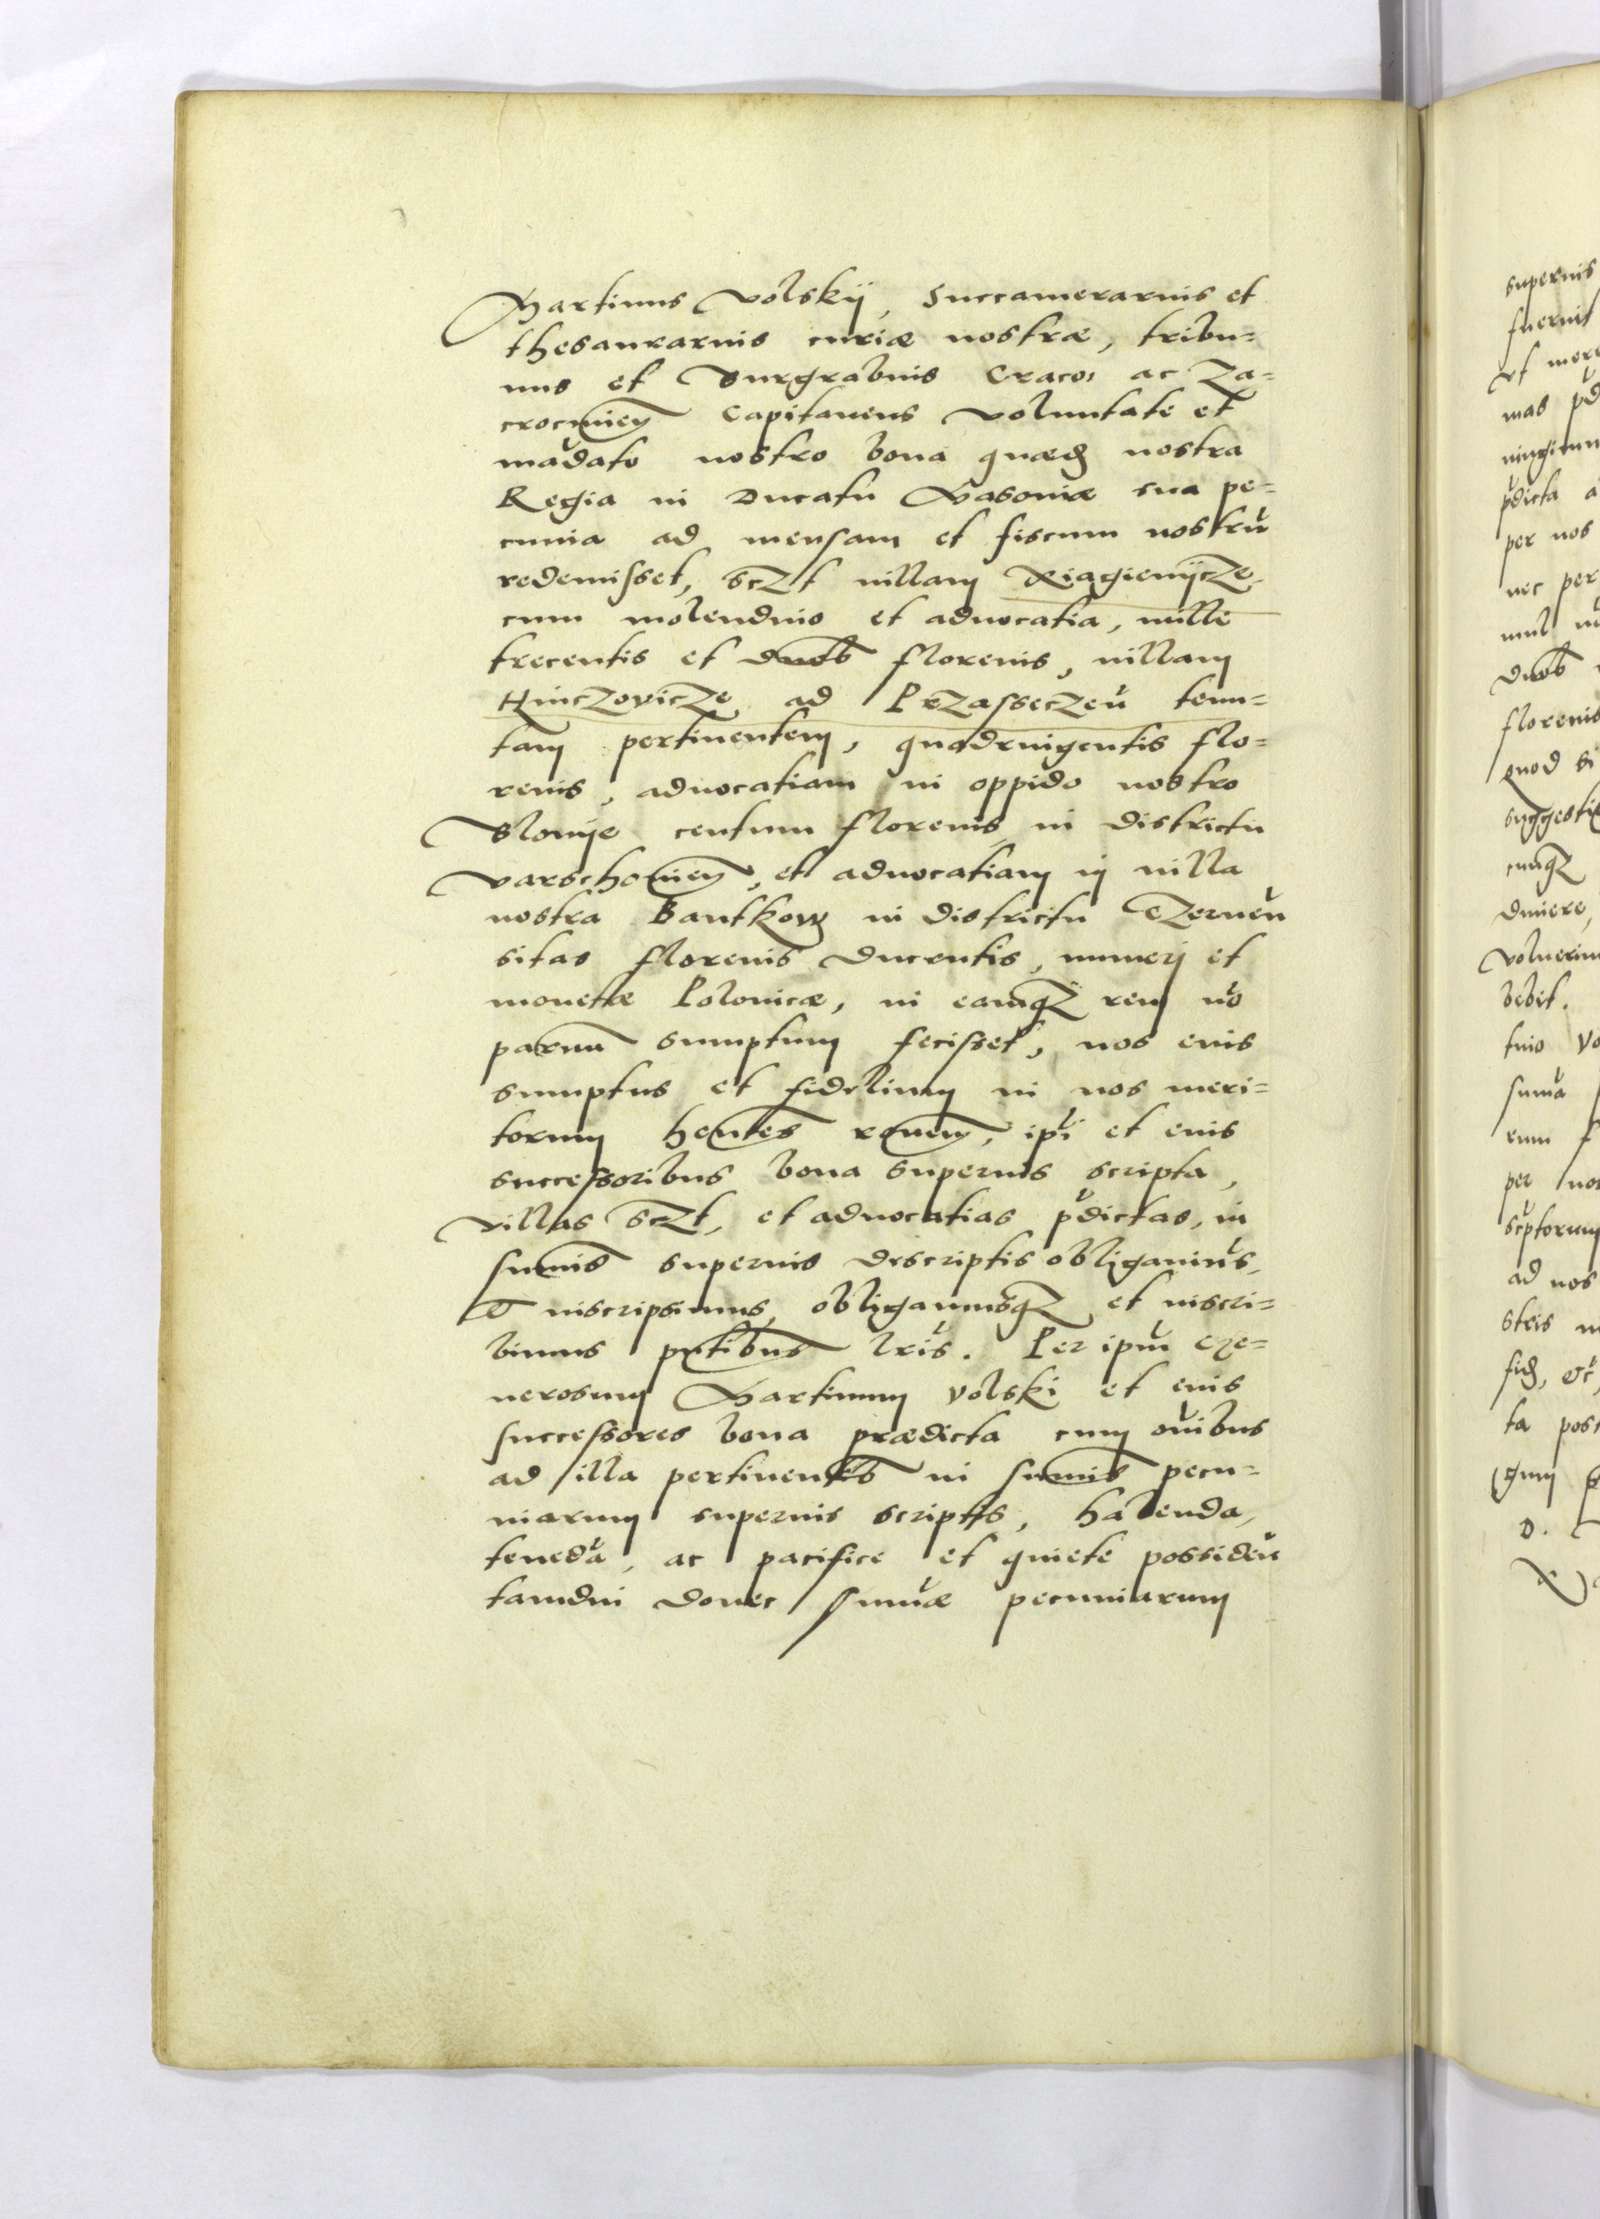 Martinus Volskij, Succamerarius et
thesaurarius curiæ nostræ, tribu=
nus et Burgrabius Cracoᵘ ac Za=
crocimieñ Capitaneus voluntate et
mādato nostro bona quædā nostra
Regia in Ducatu Masoviæ sua pe=
cunia ad mensam et fiscum nostrū
redemisset, sczt villam Xiąginijcze
cum molendino et advocatia, mille
trecentis et duob florenis, villam
Hinczovicze ad Przasseczeñ tenu=
tam pertinentem, quadringentis flo=
renis, advocatiam in oppido nostro
Blonije centum florenis in districtu
Varschovieñ, et advocatiam in villa
nostra Bantkow in districtu Czerneñ
sitas florenis ducentis, numeri et
monetæ Polonicæ, in eamqz rem nō
parvū sumptum fecisset, nos eius
sumptus et fidelium in nos meri=
torum hentes rōnem, ipi et eius
successoribus bona superius scripta,
villas sczt, et advocatias pdictas, in
sumis superius descriptis obligavim̄s,
et inscripsimus, obligamusqz et inscri=
bimus pntibus lris. Per ipm Ge=
nerosum Martinum Volski et eius
successores bona prædicta cum oībus
ad illa pertinentib in sumis pecu=
niarum superius scriptis, habenda,
tenēda, ac pacifice et quiete possideñ
tamdiu donec sumæ pecuniarum
superius
fuerint
ut
mas
pdicta a
per nos
nec per
duob
florenis
quod si
cumqz
voluerim
bebit.
tuis
suma
per
sctptorum
ad nos
ta post